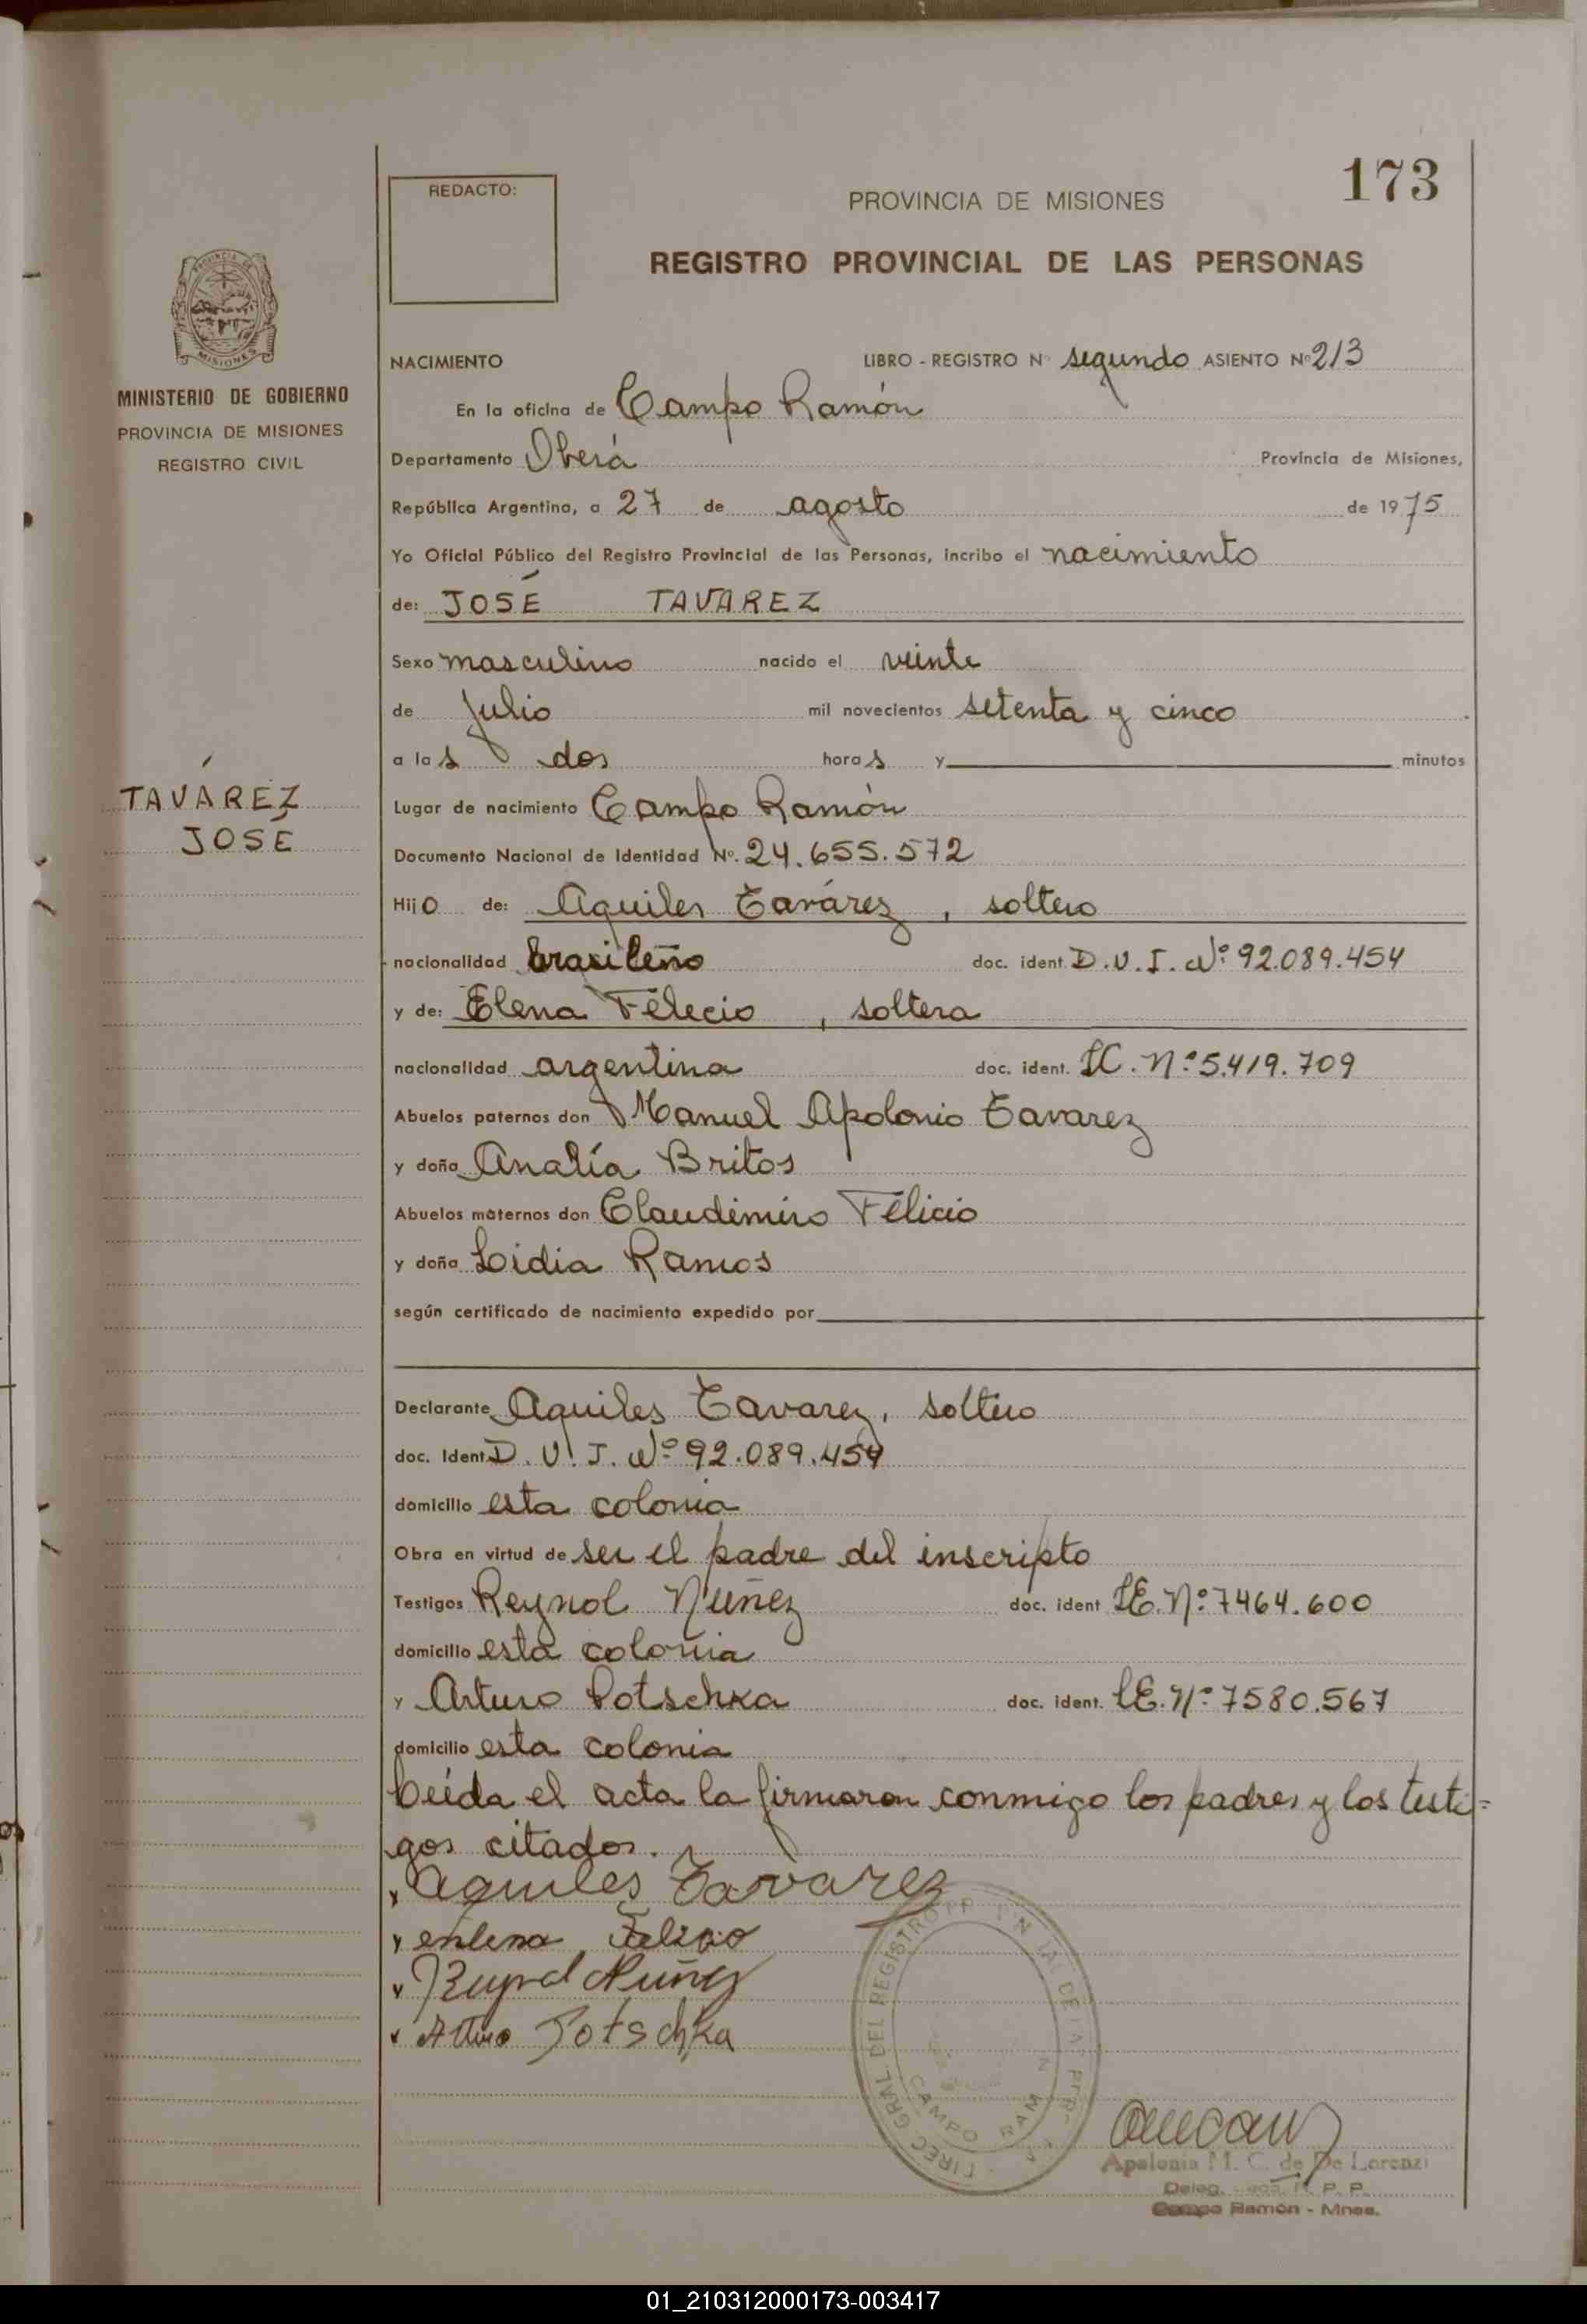 173
REDACTO:
PROVINCIA DE MISIONES
REGISTRO PROVINCIAL DE LAS PERSONAS
MISIONES
MINISTERIO DE GOBIERNO
PROVINCIA DE MISIONES
REGISTRO CIVIL
TAVÁREZ
JOSÉ
NACIMIENTO LIBRO - REGISTRO Nº segundo ASIENTO Nº 213
En la oficina de Campo Ramón
Departamento Oberá Provincia de Misiones,
República Argentina, a 27 de agosto de 1975
Yo Oficial Público del Registro Provincial de las Personas, incribo el nacimiento
de: JOSÉ TAVAREZ
Sexo masculino nacido el veinte
de julio mil novecientos setenta y cinco
a las dos horas y minutos
Lugar de nacimiento Campo Ramón
Documento Nacional de Identidad Nº. 24.655.572
Hijo de: Aquiles Tavárez, soltero
nacionalidad brasileño doc. ident. D.N.I. Nº 92.089.454
y de: Elena Felecio, soltera
nacionalidad argentina doc. ident. LC. Nº 5.419.709
Abuelos paternos don Manuel Apolonio Tavarez
y doña Analía Britos
Abuelos maternos don Claudimiro Felicio
y doña Lidia Ramos
según certificado de nacimiento expedido por
Declarante Aquiles Tavarez, soltero
doc. Ident. D.N.I. Nº 92.089.454
domicilio esta colonia
Obra en virtud de ser el padre del inscripto
Testigos Reynol Núñez doc. ident LE. Nº 7464.600
domicilio esta colonia
y Arturo Potschka doc. ident. LE. Nº 7580.567
domicilio esta colonia
Leída el acta la firmaron conmigo los padres y los testi=
gos citados.
Aquiles Tavarez
Núñez
Arturo Potschka
CAMPO RAMON
Apolonia M. C. de De Lorenzi
Campo Ramón - Mnes.
01_210312000173-003417